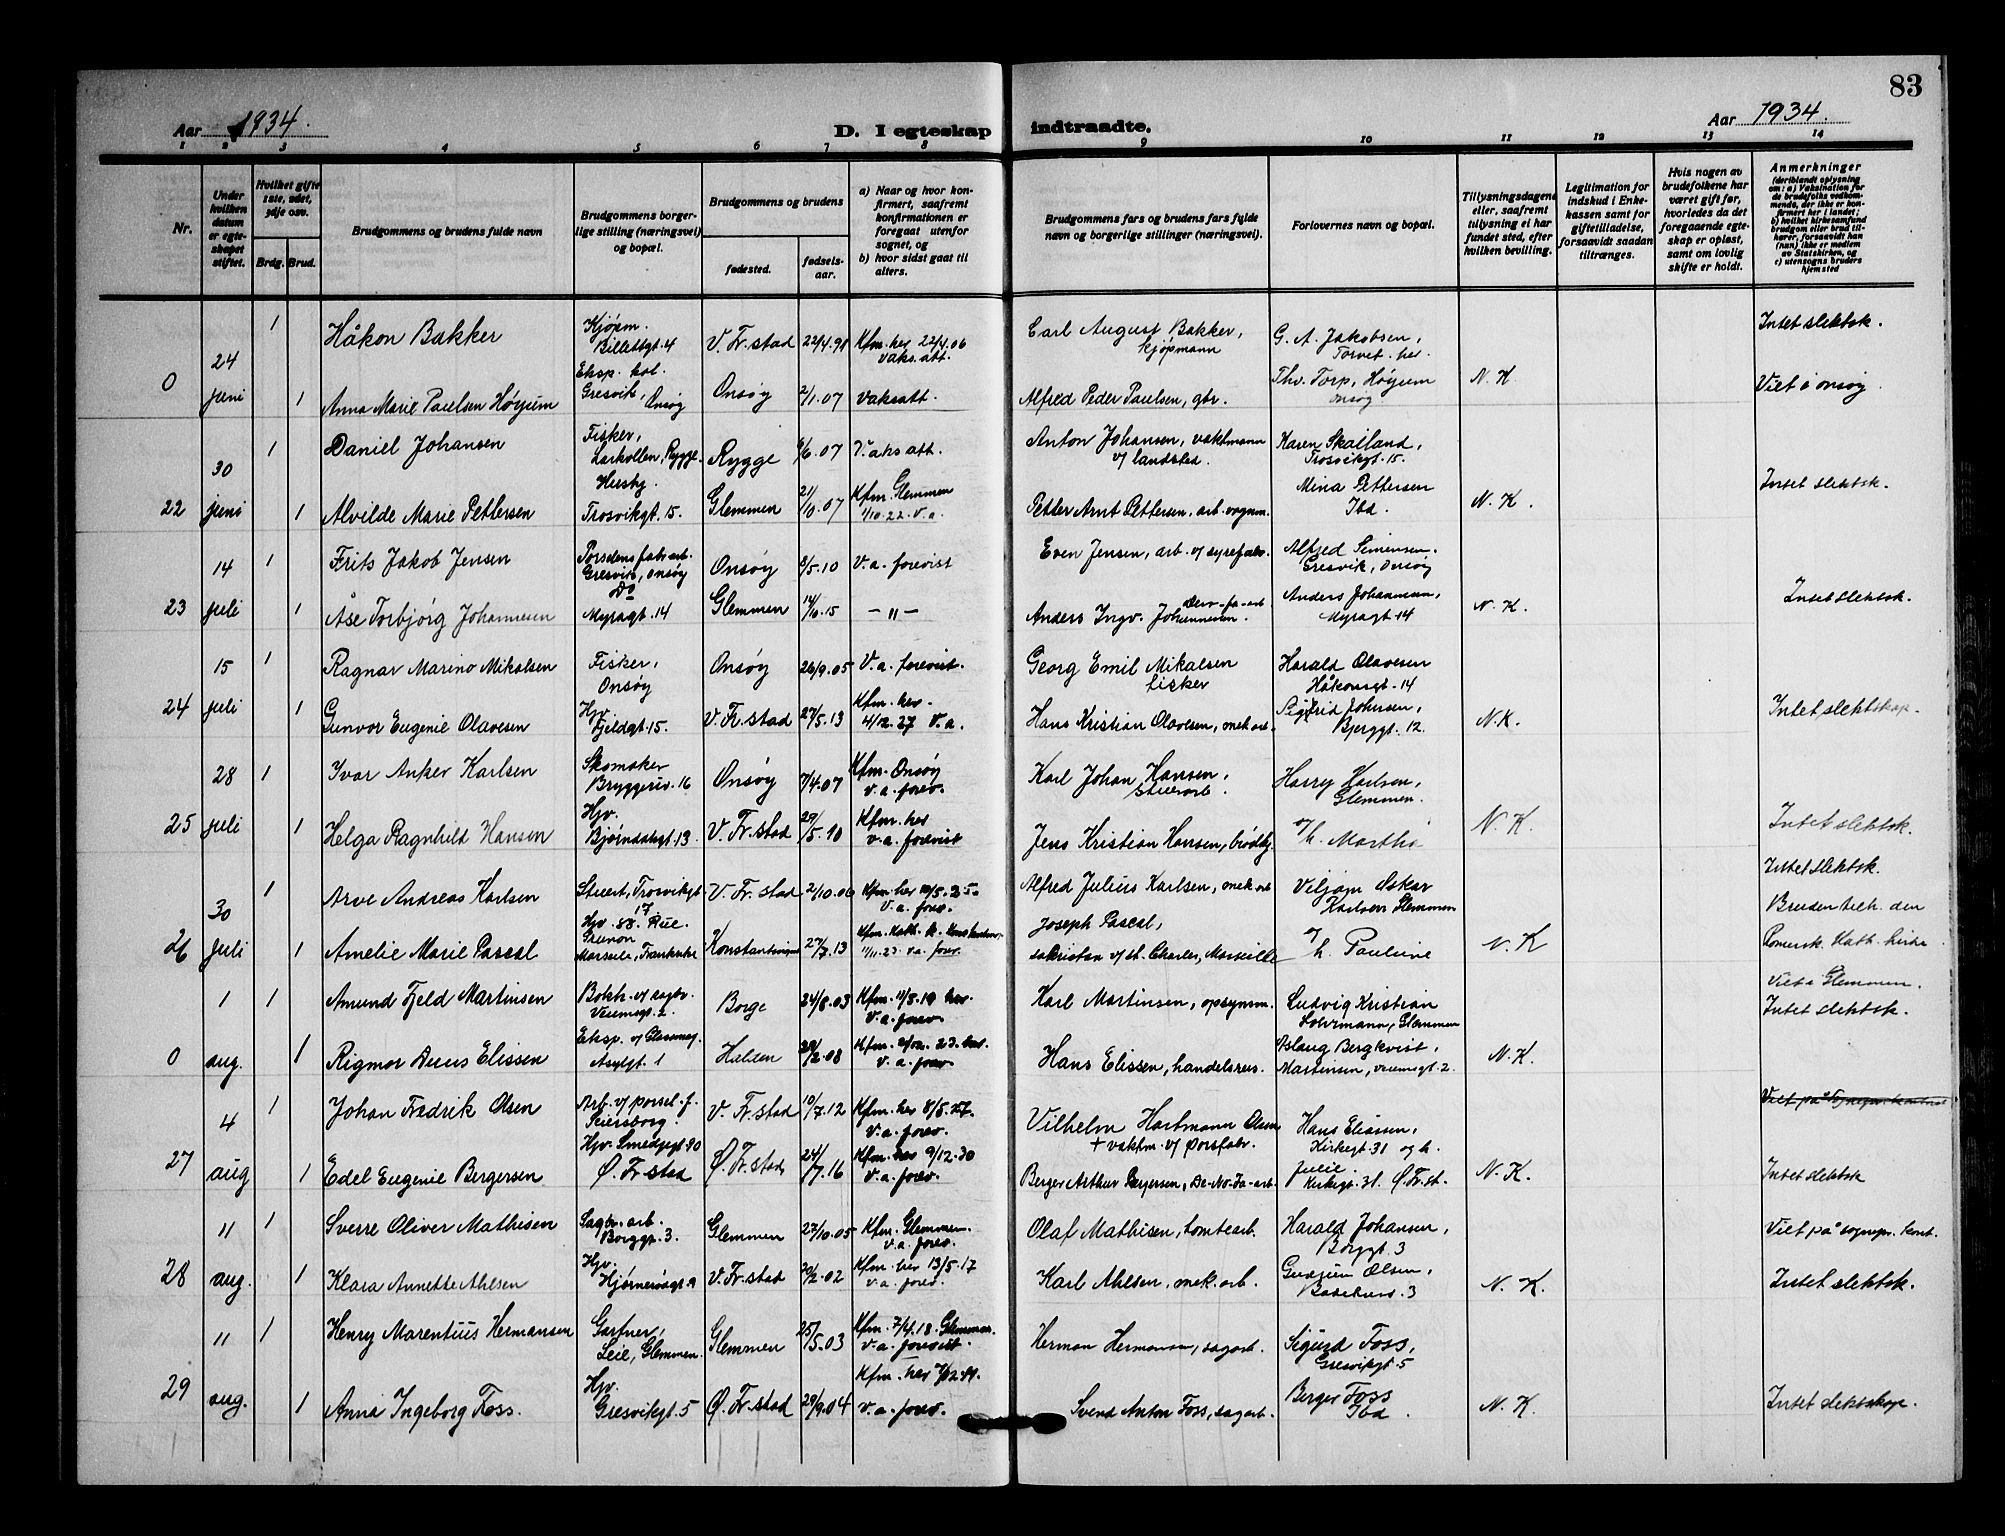 83
Aar 1934.
D. I egteskap indtraadte.
Aar 1934.
1 2 3 4 5 6 7 8 9 10 11 12 13 14
Nr.
Under hvilken datum er egteskapet stiftet.
Hvilket gifte 1ste, 2det, 3dje osv.
Brdg. Brud.
Brudgommens og brudens fulde navn
Brudgommens borgerlige stilling (næringsvei) og bopæl.
Brudgommens og brudens
fødested.
fødselsaar.
a) Naar og hvor konfirmert, saafremt konfirmationen er foregaat utenfor sognet, og
b) hvor sidst gaat til alters.
Brudgommens fars og brudens fars fulde navn og borgerlige stillinger (næringsvei).
Forlovernes navn og bopæl.
Tillysningsdagene eller, saafremt tillysning ei har fundet sted, efter hvilken bevilling.
Legitimation for indskud i Enkekassen samt for giftetilladelse, forsaavidt saadan tiltrænges.
Hvis nogen av brudefolkene har været gift før, hvorledes da det foregaaende egteskap er opløst, samt om lovlig skifte er holdt.
Anmerkninger
(deriblandt oplysning om: a) Vaksination for de brudefolks vedkommende, der ikke er konfirmert her i landet; b) hvilket kirkesamfund brudgom eller brud tilhører, forsaavidt han (hun) ikke er medlem av Statskirken, og c) utensogns bruders hjemsted
0 24 juni 1 Håkon Bakker Kjøpm. Billettgt. 4 V. Fr.stad 22/4.91 Kfm. her 22/4.06 vaks.att. Carl August Bakker, kjøpmann G. A. Jakobsen, Torvet. her. Intet slektsk.
1 Anna Marie Paulsen Høyum Eksp. kol. Gresvik, Onsøy Onsøy 2/1.07 vaksatt. Alfred Peder Paulsen, gbr. Thv. Torp, Høyum Onsøy N.K. Viet i Onsøy.
22 30 juni 1 Daniel Johansen Fisker, Larkollen, Rygge. Rygge 6/6.07 Vaksatt. Anton Johansen, vaktmann v/ landsted. Karen Skalland, Trosvikgt. 15.
1 Alvilde Marie Pettersen Husby. Trosvikgt. 15. Glemmen 21/10.07 Kfm. Glemmen 1/10.22. V.a. Petter Arnt Pettersen, arb. vognm. Mina Pettersen Ibd. N.K. Intet slektsk.
23 14 juli 1 Frits Jakob Jensen Porselensfabr.arb. Gresvik, Onsøy Onsøy 8/5.10 V.a. forevist Even Jensen, arb. v/ syrefabr. Alfred Simensen. Gresvik, Onsøy
1 Åse Torbjørg Johannesen Do Myragt. 14 Glemmen 14/10.15 — " — Anders Ingv. Johannesen. Anders Johannesen, Myragt. 14 N.K. Intet slektsk.
24 15 juli 1 Ragnar Marino Mikalsen Fisker, Onsøy Onsøy 26/9.05 V.a. forevist. Georg Emil Mikalsen fisker Harald Olavesen Håkonsgt. 14
1 Gunvor Eugenie Olavesen Hjv. Fjeldgt. 15. V. Fr.stad 27/5.13 Kfm. her. 4/12.27 V.a. Hans Kristian Olavesen, mek.arb. Sigfrid Johnsen, Bjerggt. 12. N.K. Intet slektskap.
25 28 juli 1 Ivar Anker Karlsen Skomaker Bryggeriv. 16 Onsøy 7/4.07 Kfm. Onsøy v.a. forev. Karl Johan Hansen, Harry Karlsen, Glemmen.
1 Helga Ragnhild Hansen Hjv. Bjørndalsgt. 13 V. Fr.stad 29/5.10 Kfm. her v.a. forevist Jens Kristian Hansen, o/h. Martha N.K. Intet slektsk.
26 30 juli 1 Arve Andreas Karlsen Stuert, Trosvikgt. 17 V. Fr.stad 2/10.06 Kfm. her 10/5.25. V.a. forev. Alfred Julius Karlsen, mek.arb Viljam Oskar Karlsen Glemmen Intet slektsk.
1 Amelie Marie Pascal Hjv. 58. Rue. Marseille, Frankrike 27/7.13 Kfm. Kath. k. 11/11.23. v.a. forev. Joseph Pascal, sakristan v/ St. Charles, Marseille o/h. Pauline N.K Bruden tilh. den Romersk. Kath. kirke
0 1 aug. 1 Amund Fjeld Martinsen Bokh. v/ sagbr. Veiemsgt. 2. Borge 24/8.03 Kfm. 11/5.19 her. V.a. forev. Karl Martinsen, opsynsm. Ludvig Kristian Glemmen Viet i Glemmen. Intet slektsk.
1 Rigmor Elissen Asylgt. 1 Halden Kfm. v.a. forev. Hans Elissen, handelsreis. Aslaug Bergkvist, Martinsen, Veiemsgt. 2. N.K.
27 4 aug 1 Johan Fredrik Olsen Arb. v/ porsel. f. Seiersborg. V. Fr.stad 10/7.12 Kfm. her 8/5.27. V.a. forev. Vilhelm Hartmann Olsen + vaktm. v/ porsfabr. Hans Eliassen, Kirkegt. 31 og h. Julie.
1 Edel Eugenie Bergersen Hjv. Smedjegt 90 Ø. Fr.stad Ø. Fr.stad 24/7.16 Kfm. her 9/12.30 v.a. forev. Berger Arthur Bergersen, De-No-Fa-arb. Kirkegt. 31. Ø. Fr.st. N.K. Intet slektsk
28 11 aug. 1 Sverre Oliver Mathisen Sagbr. arb. Borggt. 3. Glemmen 27/10.05 Kfm. Glemmen. v.a. forev. Olaf Mathisen, tomtearb. Harald Johansen, Borggt. 3 Viet på sognepr. kont.
1 Klara Annette Ahlsen Hjv. V. Fr.stad 20/2.02 Kfm. her 13/5.17 v.a. forev. Karl Ahlsen, mek.arb. Gudrun Olsen, N.K. Intet slektsk.
29 11 aug. 1 Henry Marentius Hermansen Gartner, Leie, Glemmen. Glemmen 25/5.03 Kfm. 7/4.18. Glemmen. v.a. forevist. Herman Hermansen, sagarb. Sigurd Foss, Gresvikgt. 5
1 Anna Ingeborg Foss. Hjv. Gresvikgt. 5 Ø. Fr.stad 29/9.04 Kfm. her v.a. forev. Svend Anton Foss, sagarb. Berger Foss Ibd. N.K. Intet slektskap.